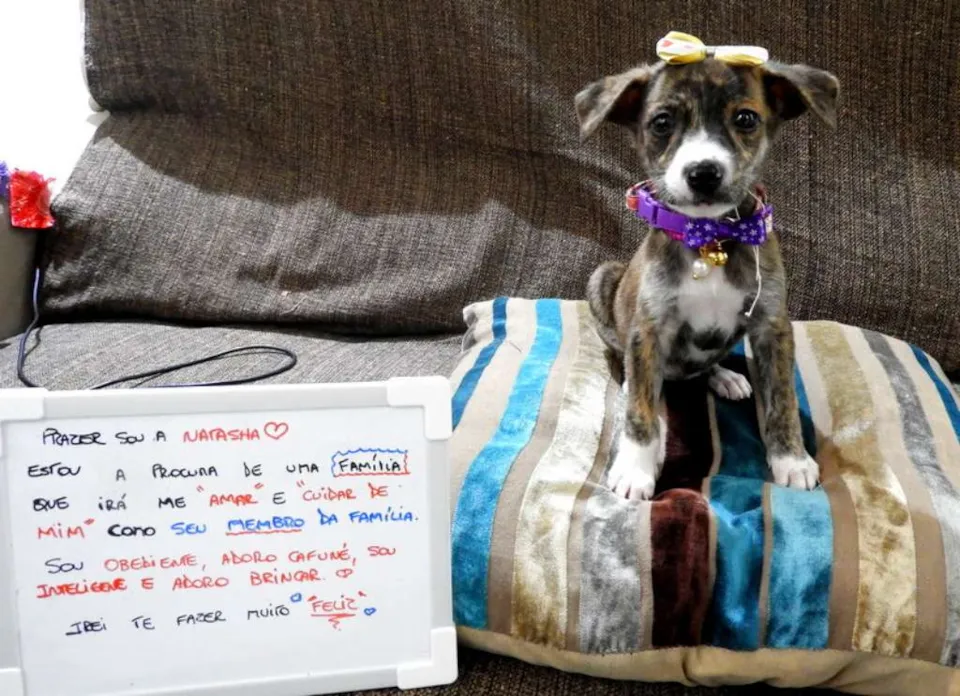 PRAZER SOU A NATASHA
ESTOU A PROCURA DE UMA FAMÍLIA
QUE IRÁ ME "AMAR" E "CUIDAR DE
MIM" COMO SEU MEMBRO DA FAMÍLIA.
SOU OBEDIENTE, ADORO CAFUNÉ, SOU
INTELIGENTE E ADORO BRINCAR.
IREI TE FAZER MUITO "FELIZ"